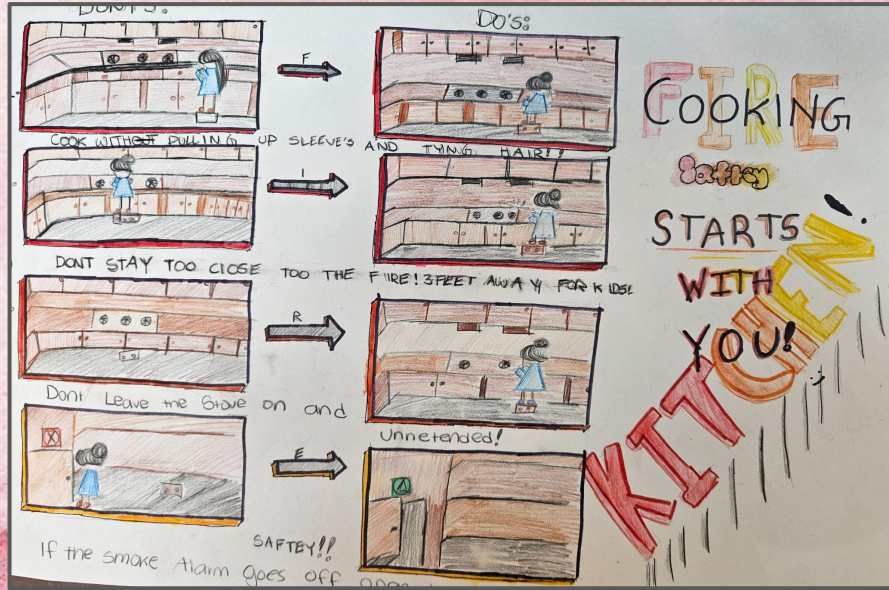 DONT'S:
DO'S:
F
COOK WITHOUT PULLING UP SLEEVE'S AND TYING HAIR!!
I
DONT STAY TOO CLOSE TOO THE FIRE! 3FEET AWAY FOR KIDS!
R
Dont Leave the Stove on and Unnetended!
E
SAFTEY!!
If the smoke Alarm goes off
FIRE
COOKING
Saftey
STARTS
WITH
YOU!
KITCHEN